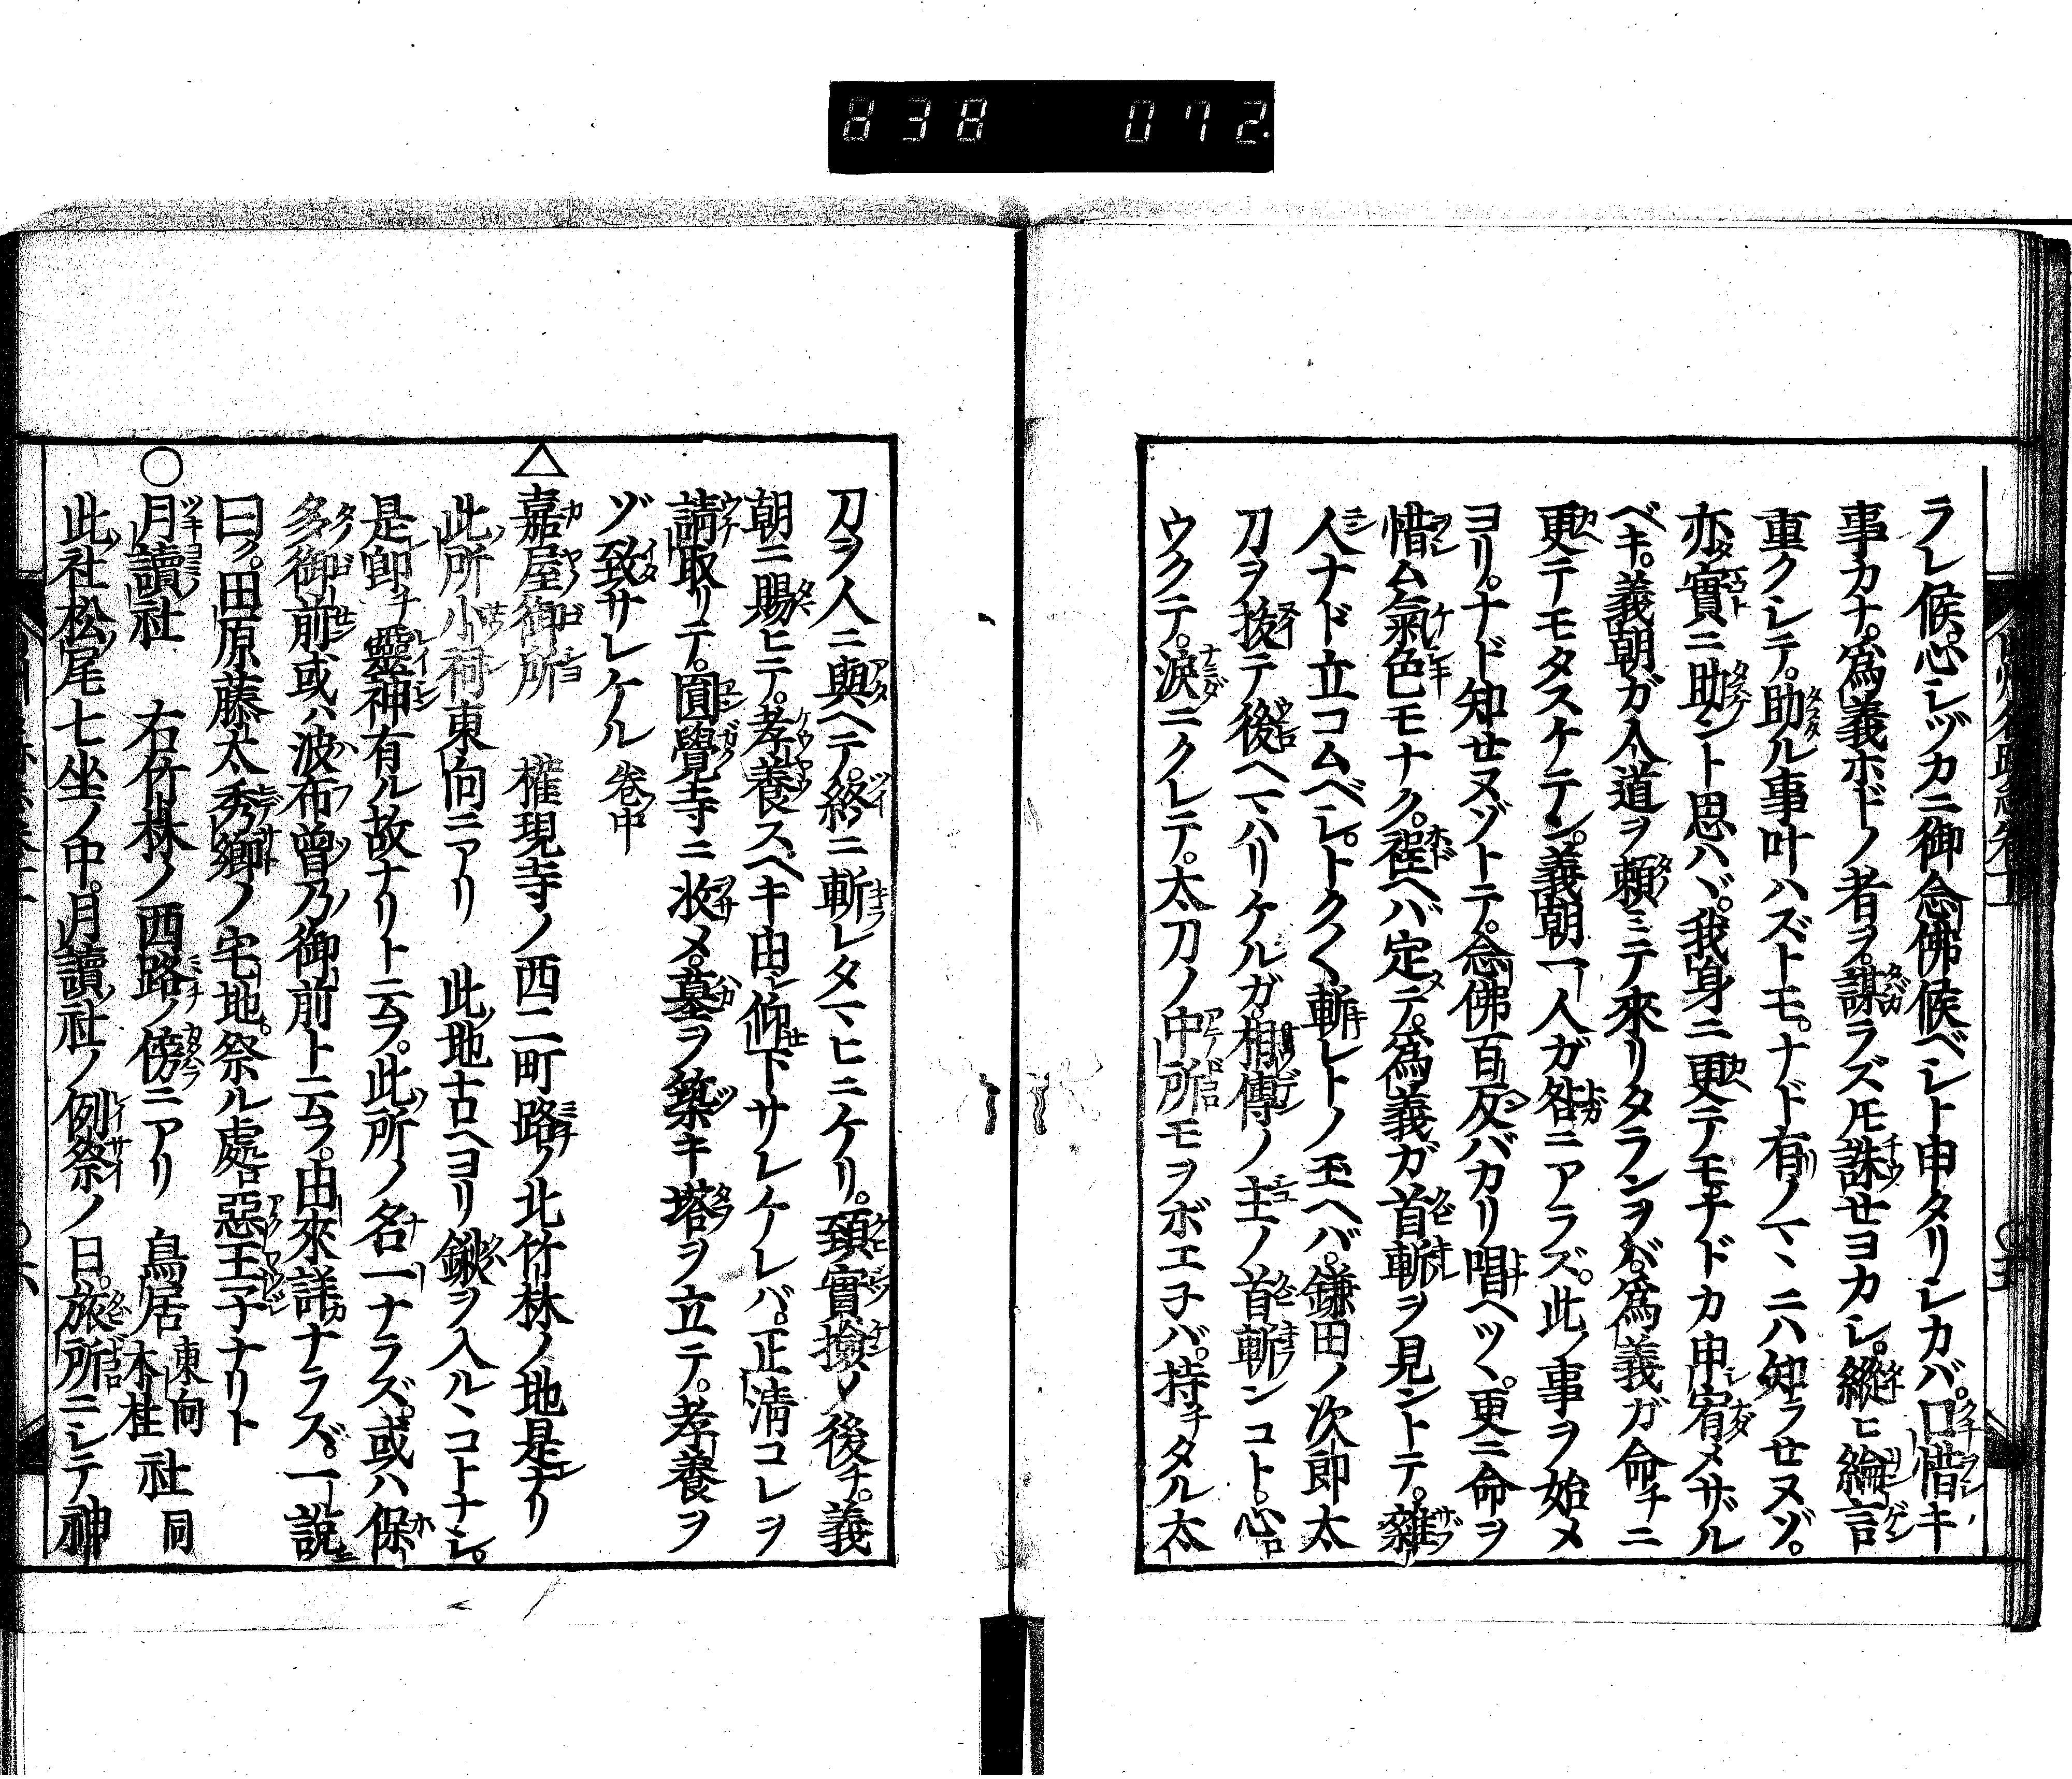 838 072
ラレ候。心シヅカニ御念佛候ベシト申タリシカバ。口惜キ
事カナ。爲義ホドノ者ヲ。謀ラズ𪜈誅セヨカシ。縱ヒ綸言
重クシテ。助ル事叶ハズトモ。ナド有ノマヽニハ知ラセヌゾ。
亦實ニ助ント思ハヾ。我身ニ更テモナドカ申宥メザル
ベキ。義朝ガ入道ヲ頼ミテ來リタランヲバ。爲義ガ命チニ
更テモタスケテン。義朝一人ガ咎ニアラズ。此ノ事ヲ始メ
ヨリ。ナド知セヌゾトテ。念佛百反バカリ唱ヘツヽ。更ニ命ヲ
惜ム氣色モナク。程ヘバ定テ。爲義ガ首斬ヲ見ントテ。雜
人ナド立コムベシ。トク〱斬レトノ玉ヘバ。鎌田ノ次郎太
刀ヲ拔テ後ヘマハリケルガ。相傳ノ主ノ首斬ンコト。心ロ
ウクテ。淚ニクレテ。太刀ノ中所モヲボエ子バ。持チタル太
刀ヲ人ニ與ヘテ。終ニ斬レタマヒニケリ。頸實撿ノ後チ。義
朝ニ賜ヒテ。孝養スベキ由シ仰下サレケレバ。正淸コレヲ
請取リテ。圓覺寺ニ收メ。墓ヲ築キ塔ヲ立テ。孝養ヲ
ゾ致サレケル 卷中
△嘉屋御所 權現寺ノ西二町路ノ北竹林ノ地是ナリ
此所小祠東向ニアリ 此地古ヘヨリ鍬ヲ入ルヽコトナシ。
是卽チ靈神有ル故ナリト云フ。此所ノ名一ナラズ。或ハ保
多御前或ハ波布曾乃御前ト云フ。由來詳カナラズ。一說ニ
曰ク。田原藤太秀鄕ノ宅地。祭ル處ロ惡王子ナリト
○月讀社 右竹林ノ西路ノ傍ニアリ 鳥居 東向 木柱 社 同
此ノ社松尾七坐ノ中。月讀社ノ例祭ノ日。旅所ニシテ神